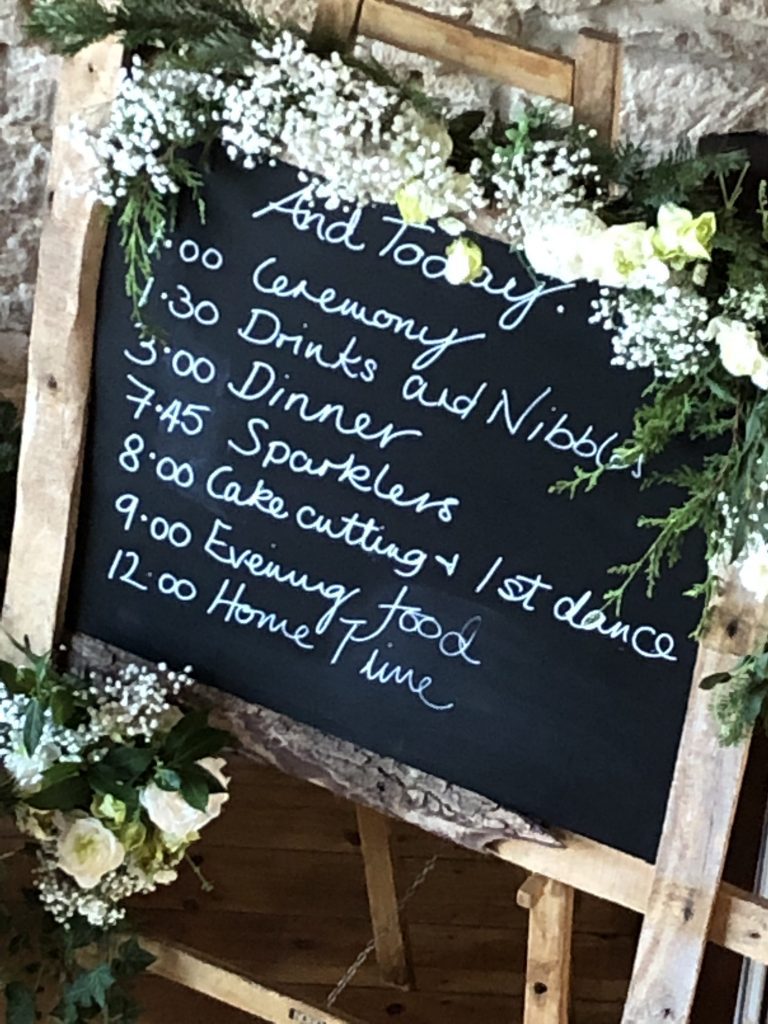 And Today.
.00 Ceremony
1.30 Drinks and Nibbles
3.00 Dinner
7.45 Sparklers
8.00 Cake cutting + 1st dance
9.00 Evening food
12.00 Home Time